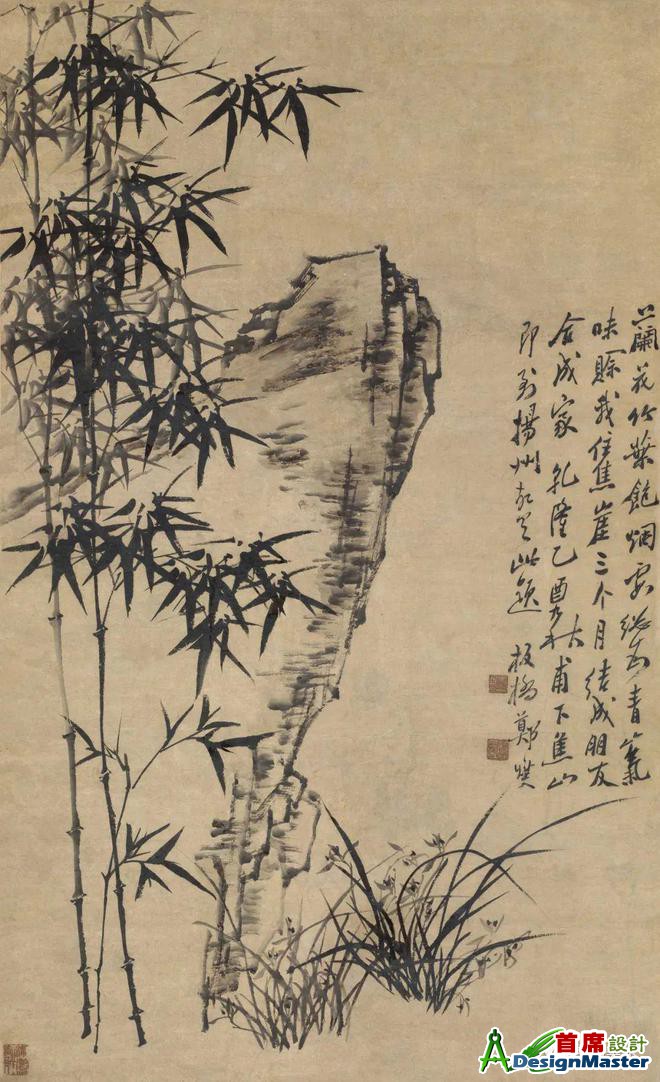 蘭花竹葉飽烟青氣
味賒我住焦崖三个月結成朋友
合成家 乾隆乙酉秋甫下焦山
即到揚州此題 板橋鄭燮
首席設計
DesignMaster